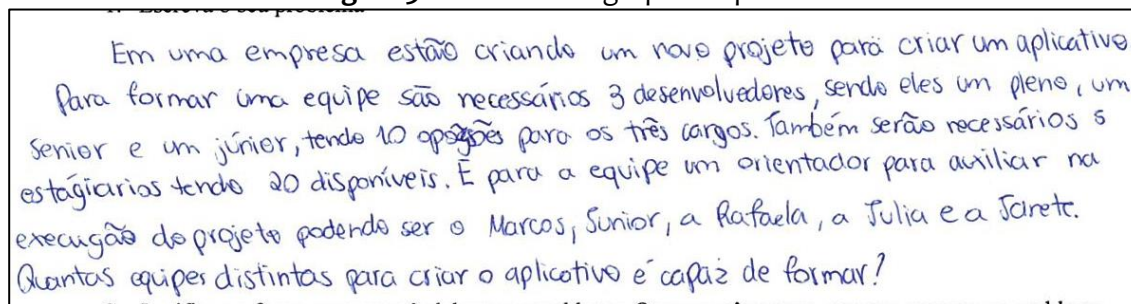 Em uma empresa estão criando um novo projeto para criar um aplicativo
Para formar uma equipe são necessários 3 desenvolvedores, sendo eles um pleno, um
senior e um júnior, tendo 10 opções para os três cargos. Também serão necessários 5
estágiarios tendo 20 disponíveis. E para a equipe um orientador para auxiliar na
execução do projeto podendo ser o Marcos, Junior, a Rafaela, a Julia e a Janete.
Quantas equipes distintas para criar o aplicativo é capaz de formar?